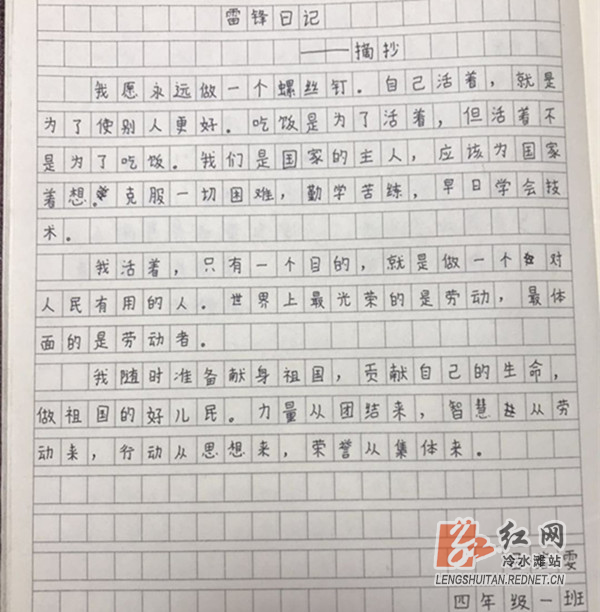 雷锋日记
——摘抄
我愿永远做一个螺丝钉。自己活着，就是
为了使别人更好。吃饭是为了活着，但活着不
是为了吃饭。我们是国家的主人，应该为国家
着想。克服一切困难，勤学苦练，早日学会技
术。
我活着，只有一个目的，就是做一个对
人民有用的人。世界上最光荣的是劳动，最体
面的是劳动者。
我随时准备献身祖国，贡献自己的生命，
做祖国的好儿民。力量从团结来，智慧从劳
动来，行动从思想来，荣誉从集体来。
红网
雯
冷水滩站
LENGSHUITAN.REDNET.CN
四年级一班